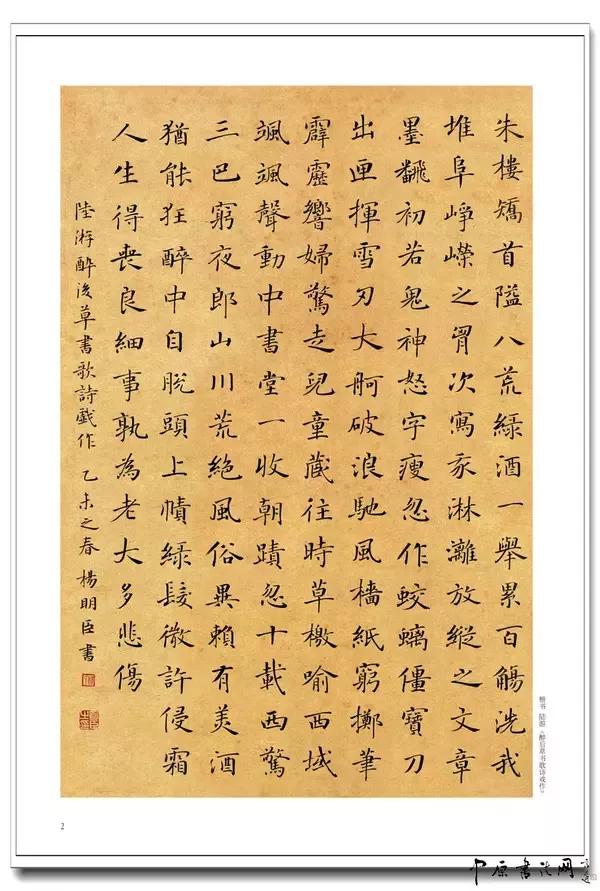 朱樓矯首隘八荒綠酒一舉累百觴洗我
堆阜崢嶸之胷次寫豕淋漓放縱之文章
墨飜初若鬼神怒字瘦忽作蛟螭僵寶刀
出匣揮雪刃大舸破浪馳風檣紙窮擲筆
霹靂響婦驚走兒童藏往時草檄喻西域
颯颯聲動中書堂一收朝蹟忽十載西驚
三巴窮夜郎山川荒絕風俗異賴有美酒
猶能狂醉中自脫頭上幘綠髮微許侵霜
人生得喪良細事孰為老大多悲傷
陸游醉後草書歌詩戲作 乙未之春 楊明臣書
楷书 陆游《醉后草书歌诗戏作》
2
中原书法网